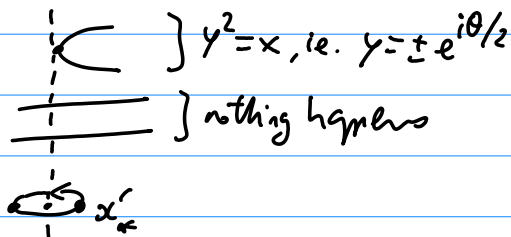 } y² = x, ie. y = ± e^{iθ/2}
} nothing happens
x'_*